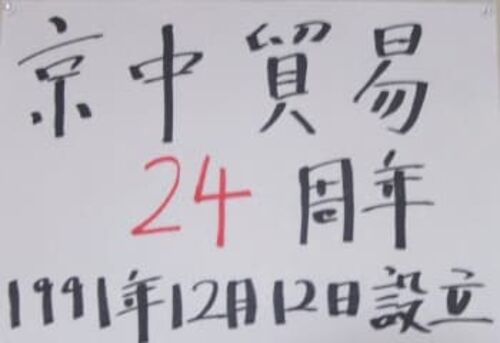 京中貿易
24周年
1991年12月12日設立